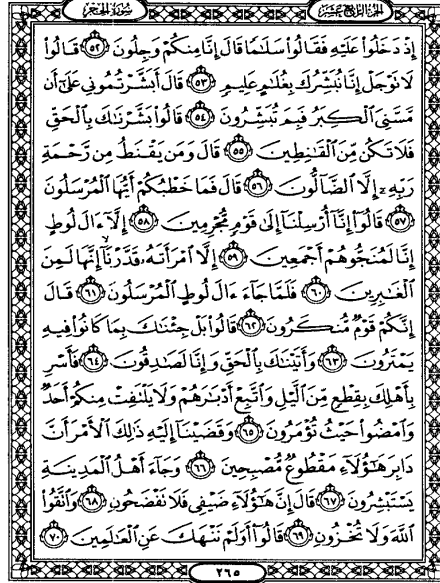 سورة الحجر الجزء الرابع عشر
إِذْ دَخَلُوا۟ عَلَيْهِ فَقَالُوا۟ سَلَـٰمًا قَالَ إِنَّا مِنكُمْ وَجِلُونَ ٥٢ قَالُوا۟
لَا تَوْجَلْ إِنَّا نُبَشِّرُكَ بِغُلَـٰمٍ عَلِيمٍ ٥٣ قَالَ أَبَشَّرْتُمُونِى عَلَىٰٓ أَن
مَّسَّنِىَ ٱلْكِبَرُ فَبِمَ تُبَشِّرُونَ ٥٤ قَالُوا۟ بَشَّرْنَـٰكَ بِٱلْحَقِّ
فَلَا تَكُن مِّنَ ٱلْقَـٰنِطِينَ ٥٥ قَالَ وَمَن يَقْنَطُ مِن رَّحْمَةِ
رَبِّهِۦٓ إِلَّا ٱلضَّآلُّونَ ٥٦ قَالَ فَمَا خَطْبُكُمْ أَيُّهَا ٱلْمُرْسَلُونَ
٥٧ قَالُوٓا۟ إِنَّآ أُرْسِلْنَآ إِلَىٰ قَوْمٍ مُّجْرِمِينَ ٥٨ إِلَّآ ءَالَ لُوطٍ
إِنَّا لَمُنَجُّوهُمْ أَجْمَعِينَ ٥٩ إِلَّا ٱمْرَأَتَهُۥ قَدَّرْنَآ إِنَّهَا لَمِنَ
ٱلْغَـٰبِرِينَ ٦٠ فَلَمَّا جَآءَ ءَالَ لُوطٍ ٱلْمُرْسَلُونَ ٦١ قَالَ
إِنَّكُمْ قَوْمٌ مُّنكَرُونَ ٦٢ قَالُوا۟ بَلْ جِئْنَـٰكَ بِمَا كَانُوا۟ فِيهِ
يَمْتَرُونَ ٦٣ وَأَتَيْنَـٰكَ بِٱلْحَقِّ وَإِنَّا لَصَـٰدِقُونَ ٦٤ فَأَسْرِ
بِأَهْلِكَ بِقِطْعٍ مِّنَ ٱلَّيْلِ وَٱتَّبِعْ أَدْبَـٰرَهُمْ وَلَا يَلْتَفِتْ مِنكُمْ أَحَدٌ
وَٱمْضُوا۟ حَيْثُ تُؤْمَرُونَ ٦٥ وَقَضَيْنَآ إِلَيْهِ ذَٰلِكَ ٱلْأَمْرَ أَنَّ
دَابِرَ هَـٰٓؤُلَآءِ مَقْطُوعٌ مُّصْبِحِينَ ٦٦ وَجَآءَ أَهْلُ ٱلْمَدِينَةِ
يَسْتَبْشِرُونَ ٦٧ قَالَ إِنَّ هَـٰٓؤُلَآءِ ضَيْفِى فَلَا تَفْضَحُونِ ٦٨ وَٱتَّقُوا۟
ٱللَّهَ وَلَا تُخْزُونِ ٦٩ قَالُوٓا۟ أَوَلَمْ نَنْهَكَ عَنِ ٱلْعَـٰلَمِينَ ٧٠
٢٦٥